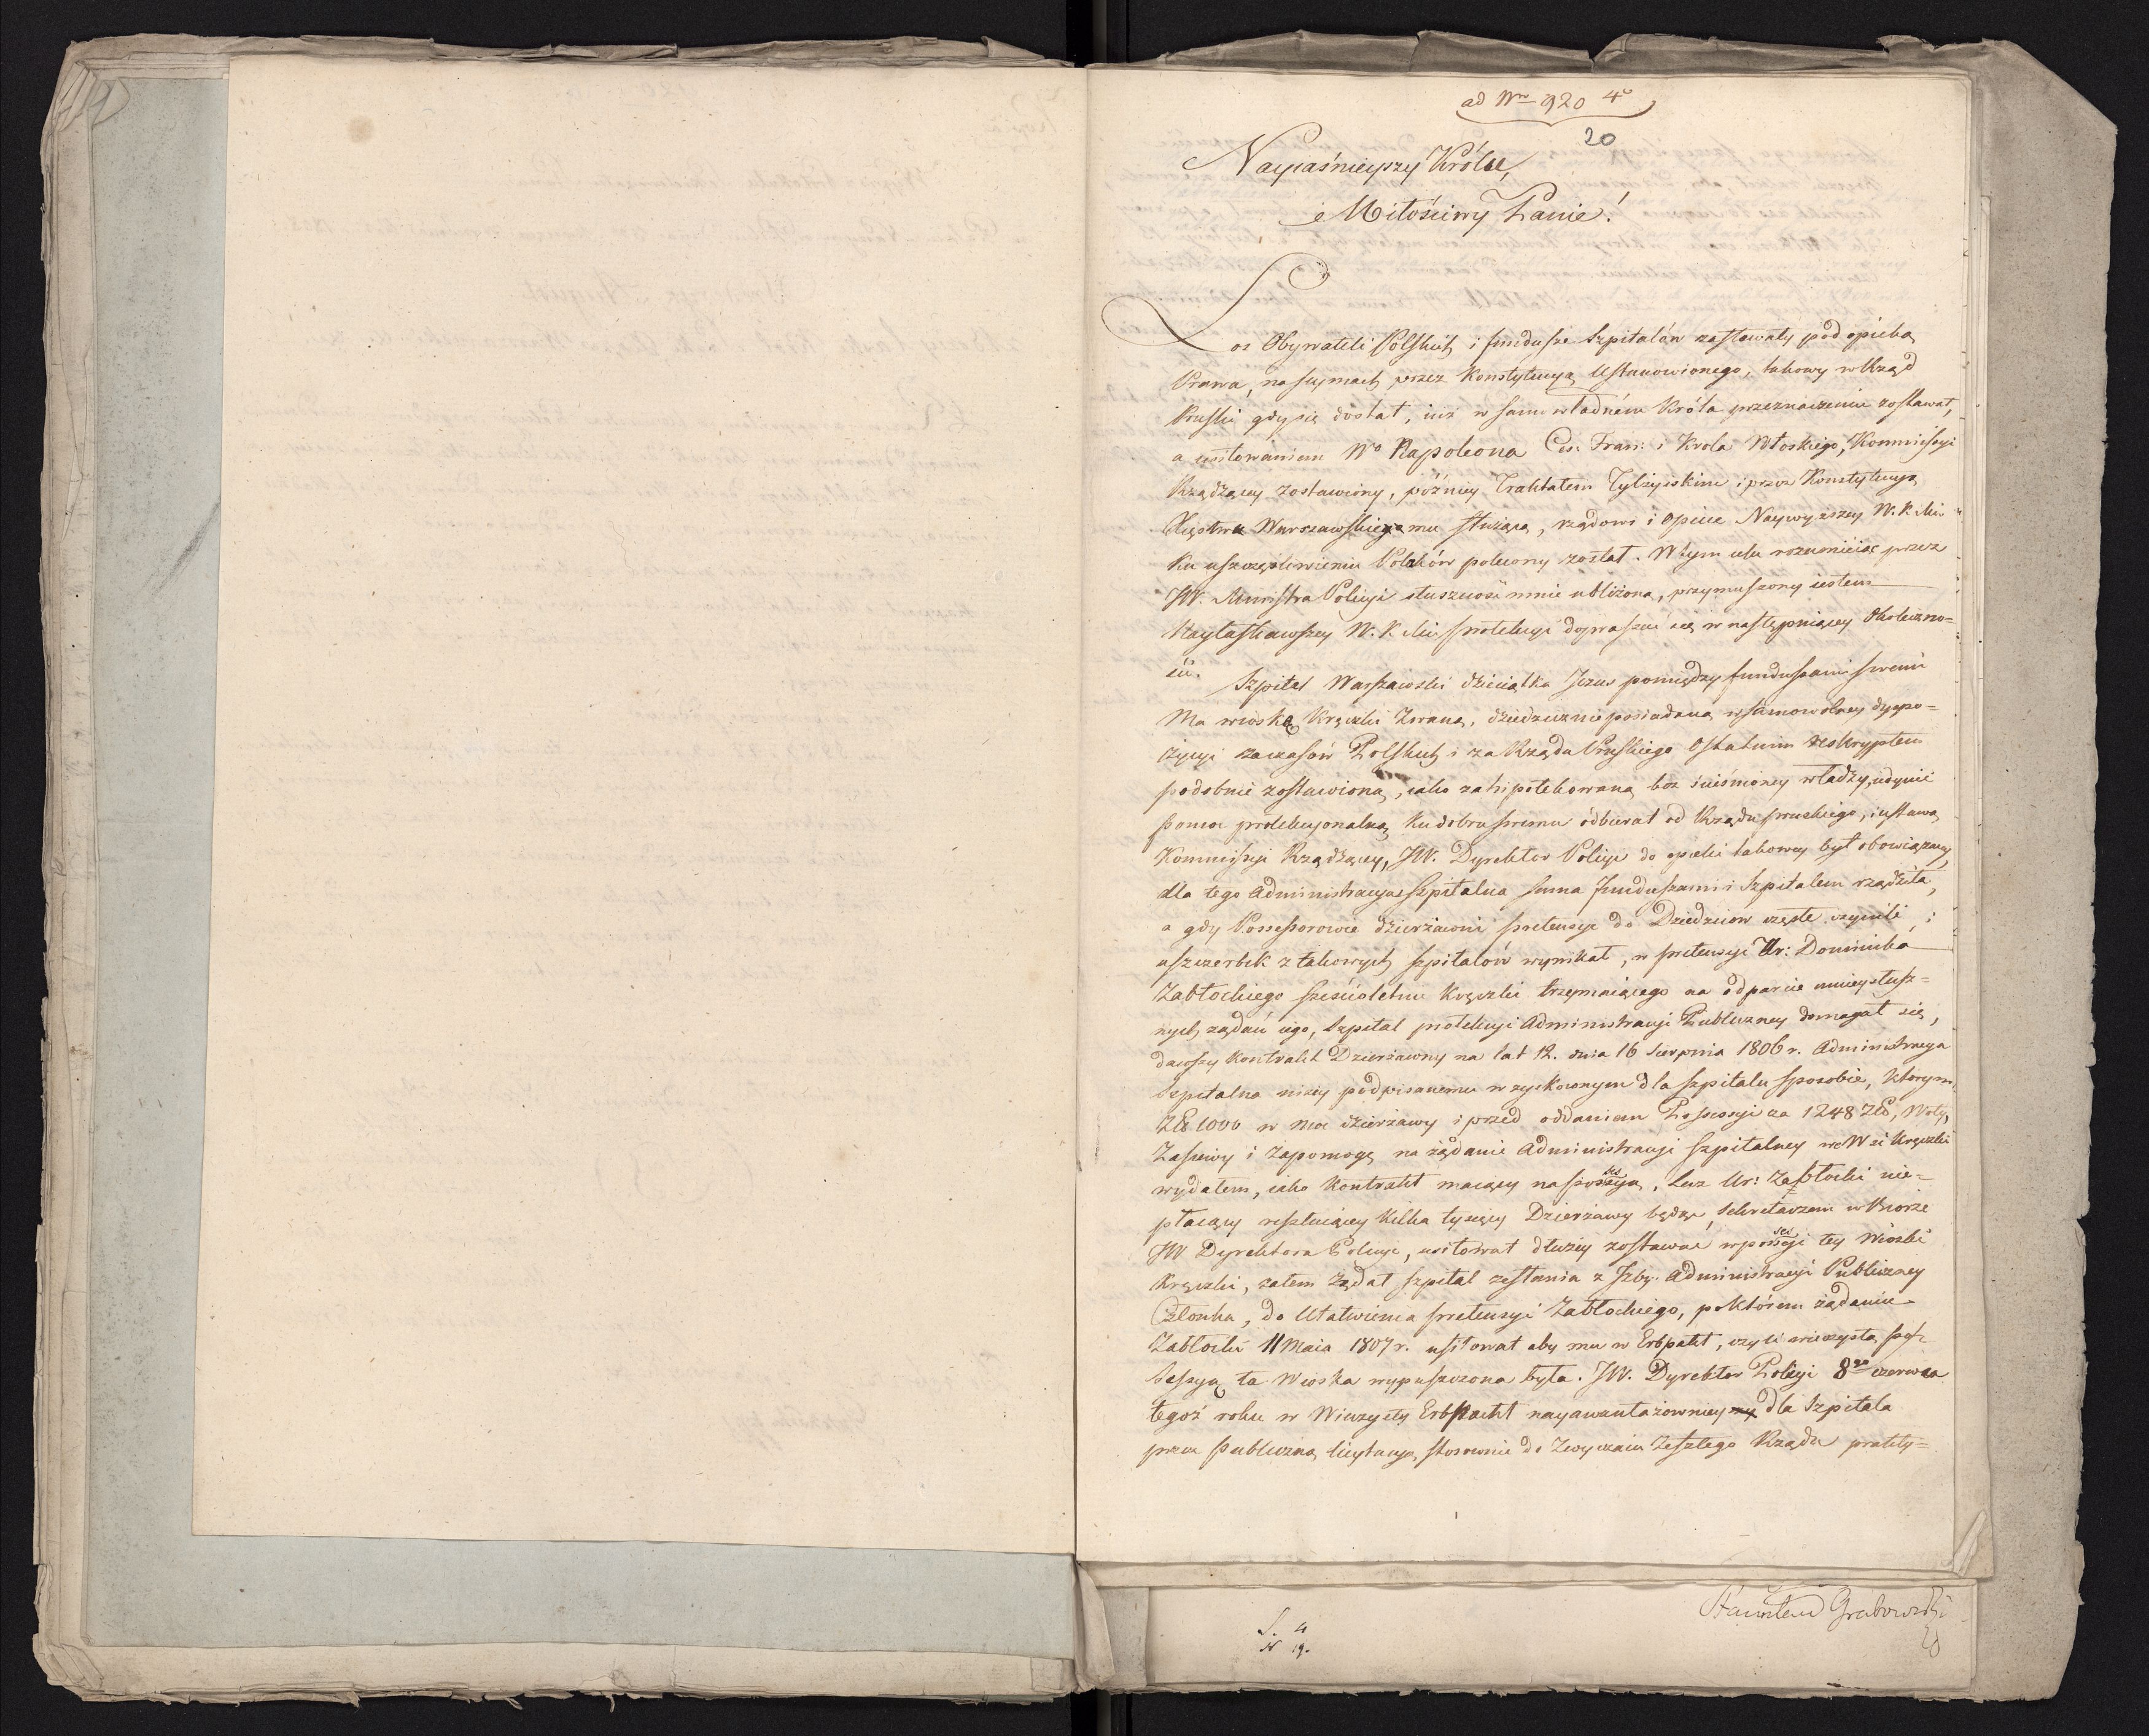 ad Nro 920 4o
20
Nayiaśnieyszy Królu,
i Miłościwy Panie!
Los Obywateli Polskich i fundusze Szpitalów zostawały pod opieką
Prawa, na seymach przez Konstytucyą Ustanowionego, takowy w Rząd
Pruski gdy się dostał, iuż w samowładném Króla przeznaczeniu zostawał,
a usiłowaniem Wo Napoleona Ces: Fran: i Krola Włoskiego, Kommissyi
Rządzącey zostawiony, późniey Traktatem Tylżyckim i przez Konstytucyą
Xięstwu Warszawskiemu służącą, rządowi i Opiece Naywyższey W. K. Mci
Ku uszczęśliwieniu Polaków polecony został. W tym celu rozumieiąc przez
JW. Ministra Policyi słuszność mnie ubliżoną, przymuszony iestem
Nayłaskawszey W. K. Mci protekcyi dopraszać się w następuiącey Okoliczno=
ści. Szpital Warszawski dzieciątka Jezus pomiędzy funduszami swemi
Ma wioskę Kręczki zwaną, dziedzicznie posiadaną w samowolney dyspo=
zycyi za czasów Polskich i za Rządu Pruskiego Ostatnim reskryptem
podobnie zostawioną, iako zahipotekowaną bez ścieśnioney władzy, iedynie
pomoc protekcyonalną Ku dobru swemu odbierał od Rządu pruskiego, i ustawą
Kommissyi Rządzącey, JW. Dyrektor Policyi do opieki takowey był obowiązany,
dla tego Administracya Szpitalna sama funduszami i Szpitalem rządziła,
a gdy Possessorowie dzierżawni pretensye do Dziedziców częste czynili, i
uszczerbek z takowych szpitalów wynikał, w pretensyi Ur: Dominika
Zabłockiego sześcioletnie Kręczki trzymaiącego na odparcie nieysłusz=
nych żądań iego, Szpital protekcyi Administracyi Publiczney domagał się,
dawszy Kontrakt Dzierżawny na lat 12. dnia 16 Sierpnia 1806 r. Administracya
Szpitalna niżey podpisanemu w zyskownym dla szpitalu sposobie, Ktorym
Zł 1000 w moc dzierżawy i przed oddaniem Possessyi za 1248 Zł, Woły,
Zasiewy i Zapomogę na żądanie Administracyi szpitalney we Wsi Kręczki
wydałem, iako Kontrakt maiący na possessyą, Lecz Ur: Zabłocki nie=
płacący resztuiącey Kilka tysięcy Dzierżawy będąc Sekretarzem w Biórze
JW Dyrektora Policyi, usiłował dłużey zostawać w possessyi tey Wioski
Kręczki, zatem Żądał szpital zesłania z Izby Administracyi Publiczney
Członka, do Ułatwienia pretensyi Zabłockiego, po Którem żądaniu
Zabłocki 11 Maia 1807 r. usiłował aby mu w Erbpakt, czyli wieczystą pos=
sessyą ta Wioska wypuszczona była. JW. Dyrektor Policyi 8go czerwca
tegoż roku w Wieczysty Erbpacht nayawantażowniey dla Szpitala
przez publiczną licytacyą stosownie do Zwyczaiu Zeszłego Rządu prakty=
Stanisław Grabowski
S. 4
N 19.